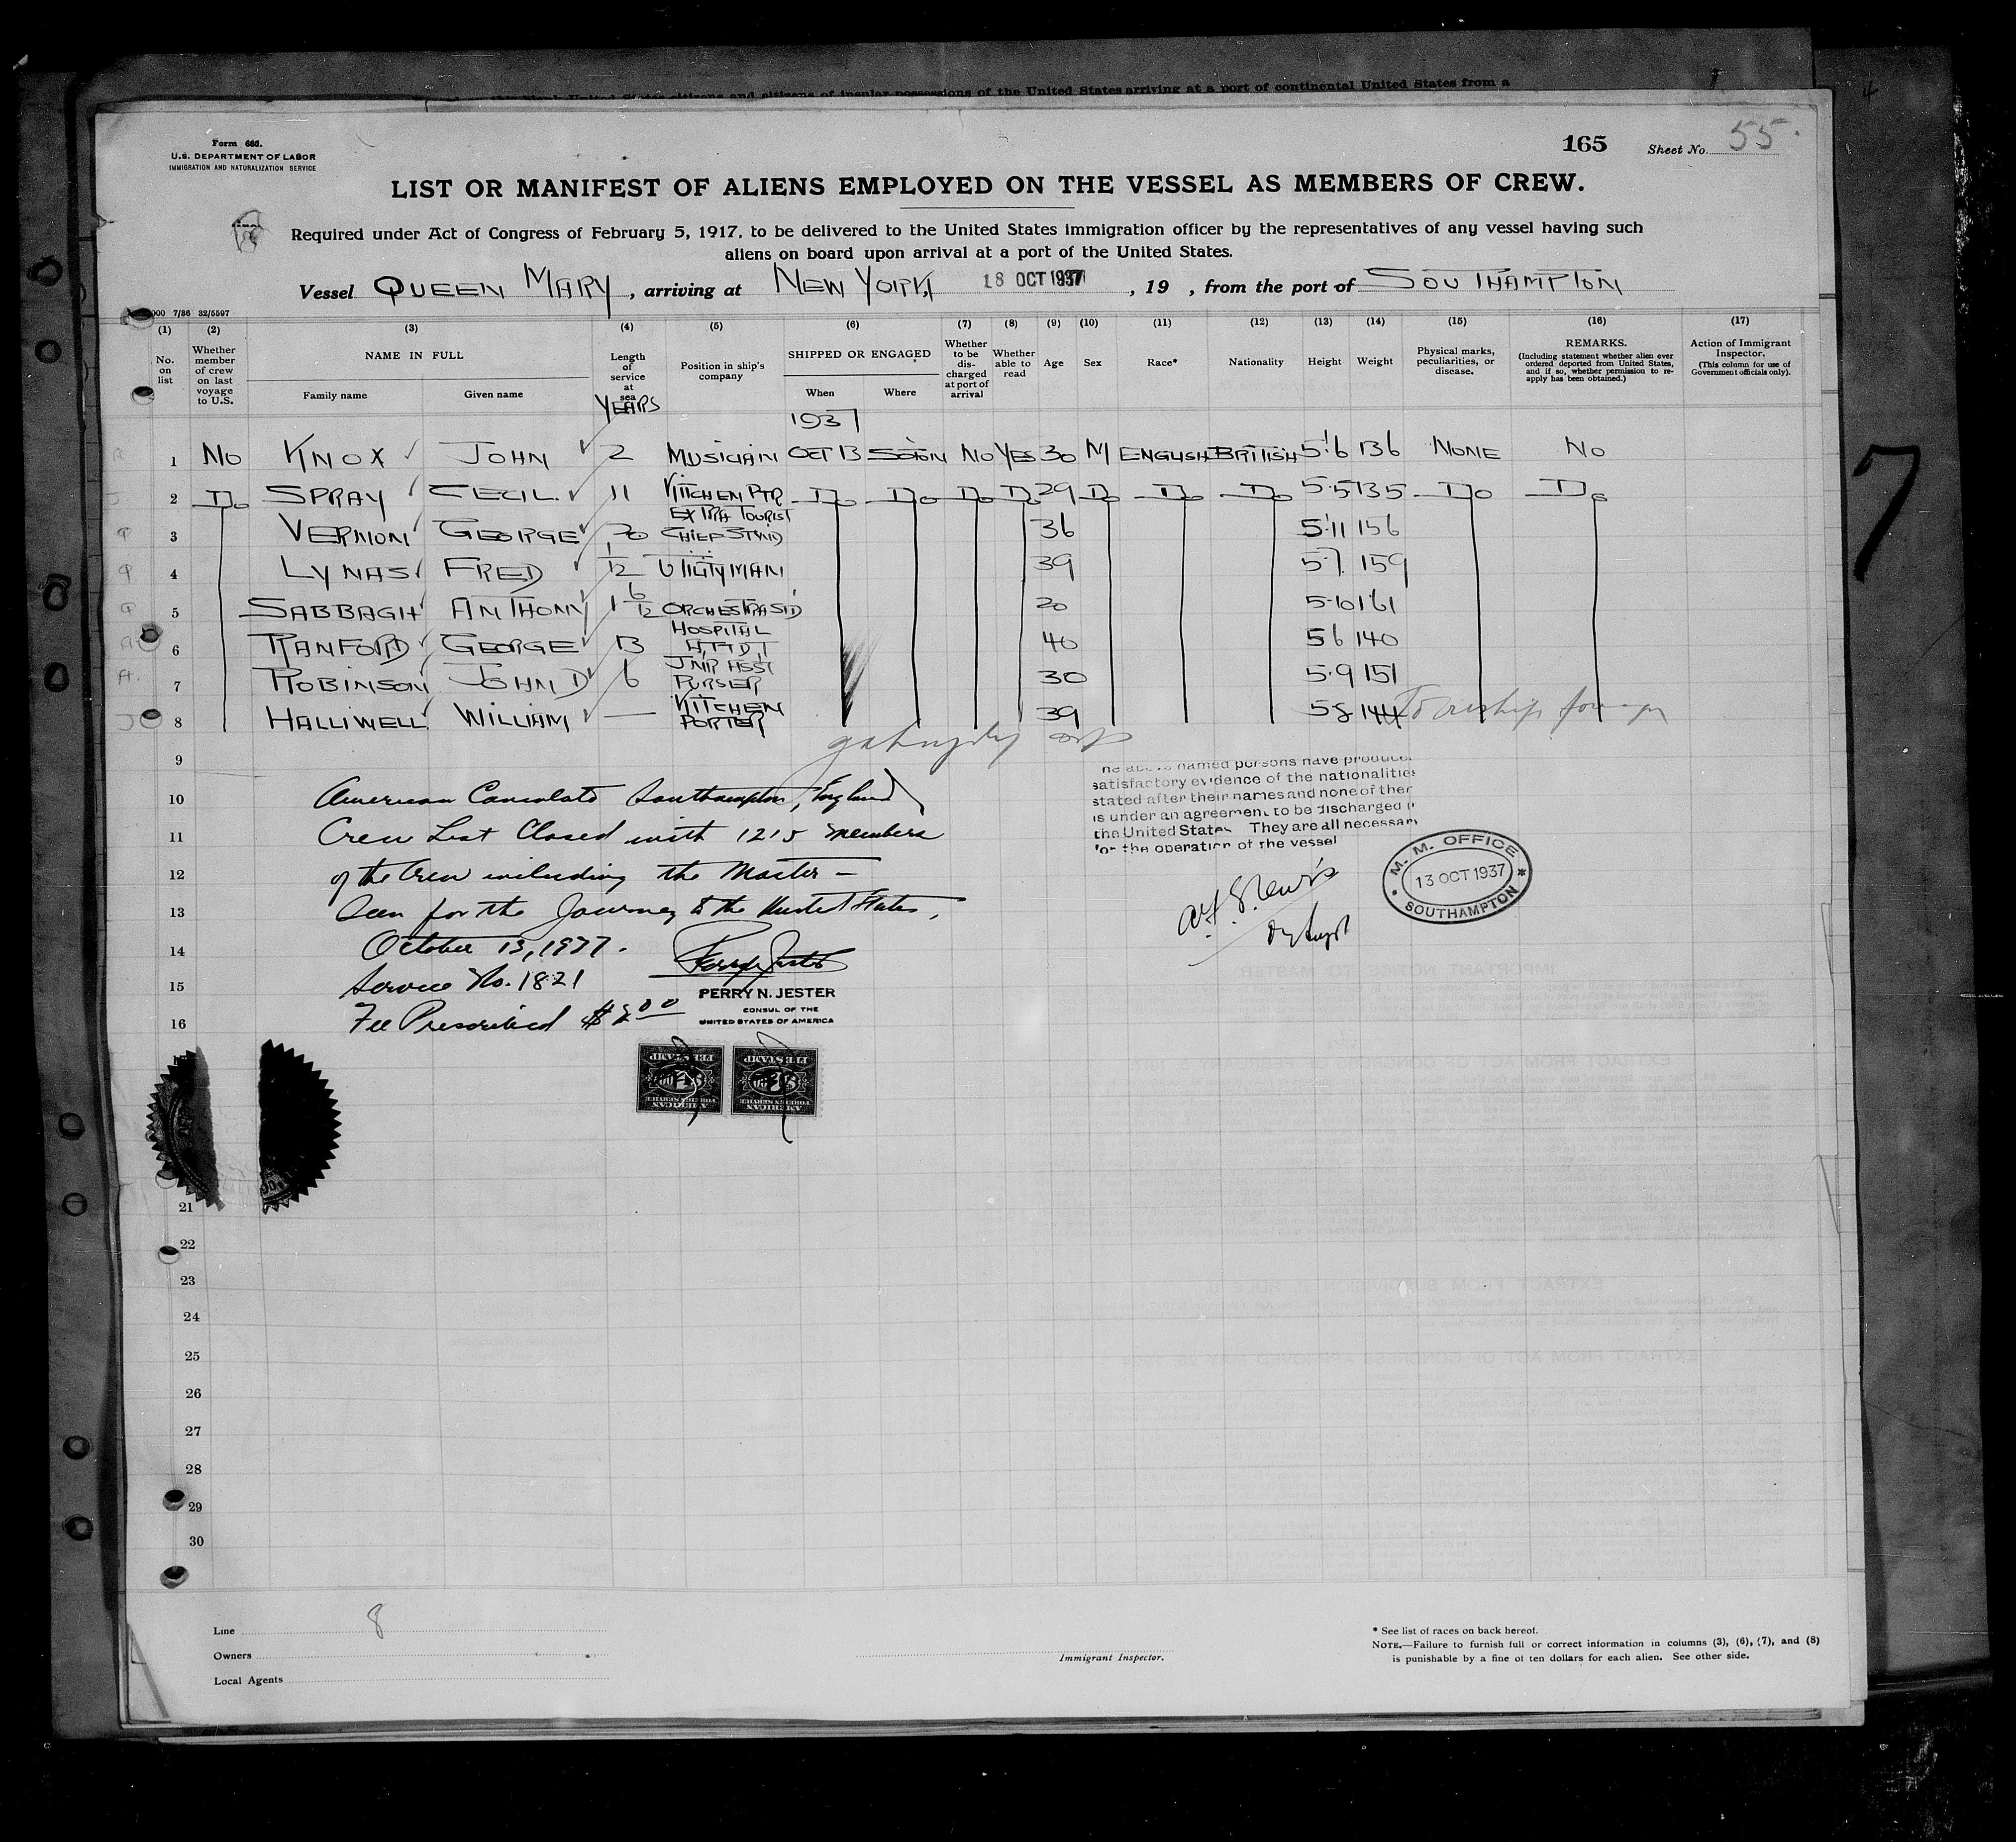 United States citizens and citizens of insular possessions of the United States arriving at a port of continental United States from a
Form 680.
U.S. DEPARTMENT OF LABOR
IMMIGRATION AND NATURALIZATION SERVICE
165 Sheet No. 55.
LIST OR MANIFEST OF ALIENS EMPLOYED ON THE VESSEL AS MEMBERS OF CREW.
Required under Act of Congress of February 5, 1917, to be delivered to the United States immigration officer by the representatives of any vessel having such
aliens on board upon arrival at a port of the United States.
Vessel QUEEN MARY, arriving at NEW YORK, 18 OCT 1937, 19 , from the port of SOUTHAMPTON
000 7/36 32/5597
(1) (2) (3) (4) (5) (6) (7) (8) (9) (10) (11) (12) (13) (14) (15) (16) (17)
No. on list
Whether member of crew on last voyage to U.S.
NAME IN FULL
Family name Given name
Length of service at sea
YEARS
Position in ship's company
SHIPPED OR ENGAGED
When Where
1937
Whether to be discharged at port of arrival
Whether able to read
Age
Sex
Race*
Nationality
Height
Weight
Physical marks, peculiarities, or disease.
REMARKS.
(Including statement whether alien ever ordered deported from United States, and if so, whether permission to re-apply has been obtained.)
Action of Immigrant Inspector.
(This column for use of Government officials only).
1 NO KNOX JOHN 2 MUSICIAN OCT 13 SOTON NO YES 30 M ENGLISH BRITISH 5'6 136 NONE NO
2 Do SPRAY CECIL. 11 KITCHEN PTR Do Do Do Do 29 Do Do Do 5·5 135 Do Do
3 VERNON GEORGE 20 EXTRA TOURIST CHIEF STWD 36 5'11 156
4 LYNAS FRED 1/12 UTILITYMAN 39 5·7. 159
5 SABBAGH ANTHONY 1 6/12 ORCHESTRA STD 20 5·10 161
6 RANFORD GEORGE 13 HOSPITAL ATTDT 40 5 6 140
7 ROBINSON JOHN D 6 JNR ASST PURSER 30 5·9 151
8 HALLIWELL WILLIAM — KITCHEN PORTER 39 5·8 144
9
10 American Consulate Southampton, England
11 Crew List Closed with 1215 members
12 of the Crew including the Master —
13 Seen for the Journey to the United States,
14 October 13, 1937.
15 Service No. 1821
16 Fee Prescribed $2.00
PERRY N. JESTER
CONSUL OF THE
UNITED STATES OF AMERICA
named persons have
satisfactory evidence of the nationalities
stated after their names and none of
is under an agreement to be discharged
the United States They are all necessary
for the operation of the vessel
M. M. OFFICE
13 OCT 1937
SOUTHAMPTON
AMERICAN
FOREIGN SERVICE
FEE STAMP
AMERICAN
FOREIGN SERVICE
FEE STAMP
7
21
22
23
24
25
26
27
28
29
30
Line 8
Owners
Local Agents
Immigrant Inspector.
* See list of races on back hereof.
NOTE.—Failure to furnish full or correct information in columns (3), (6), (7), and (8)
is punishable by a fine of ten dollars for each alien. See other side.